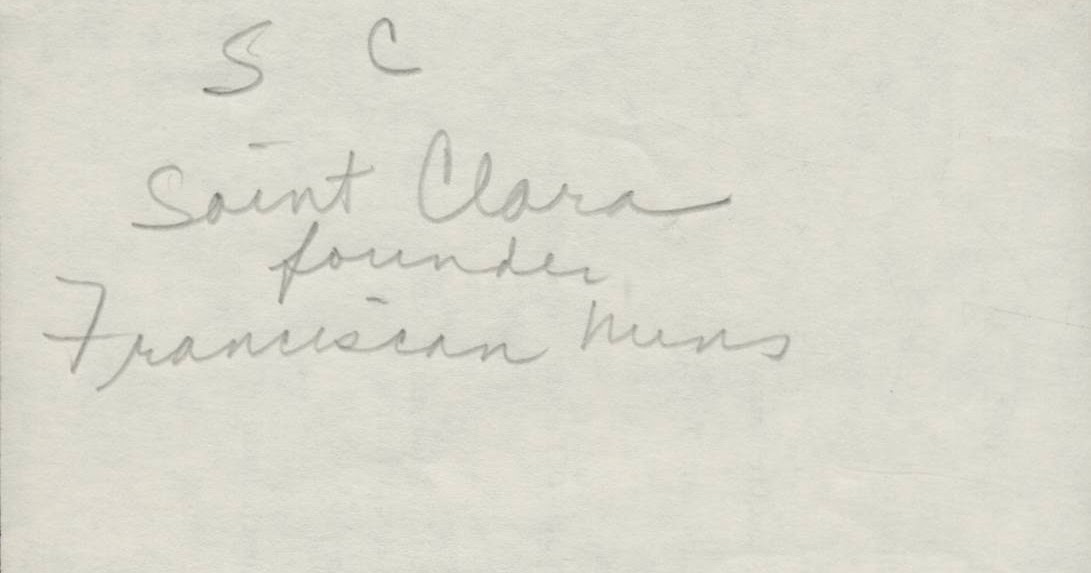 S C
Saint Clara
founder
Franciscan Nuns